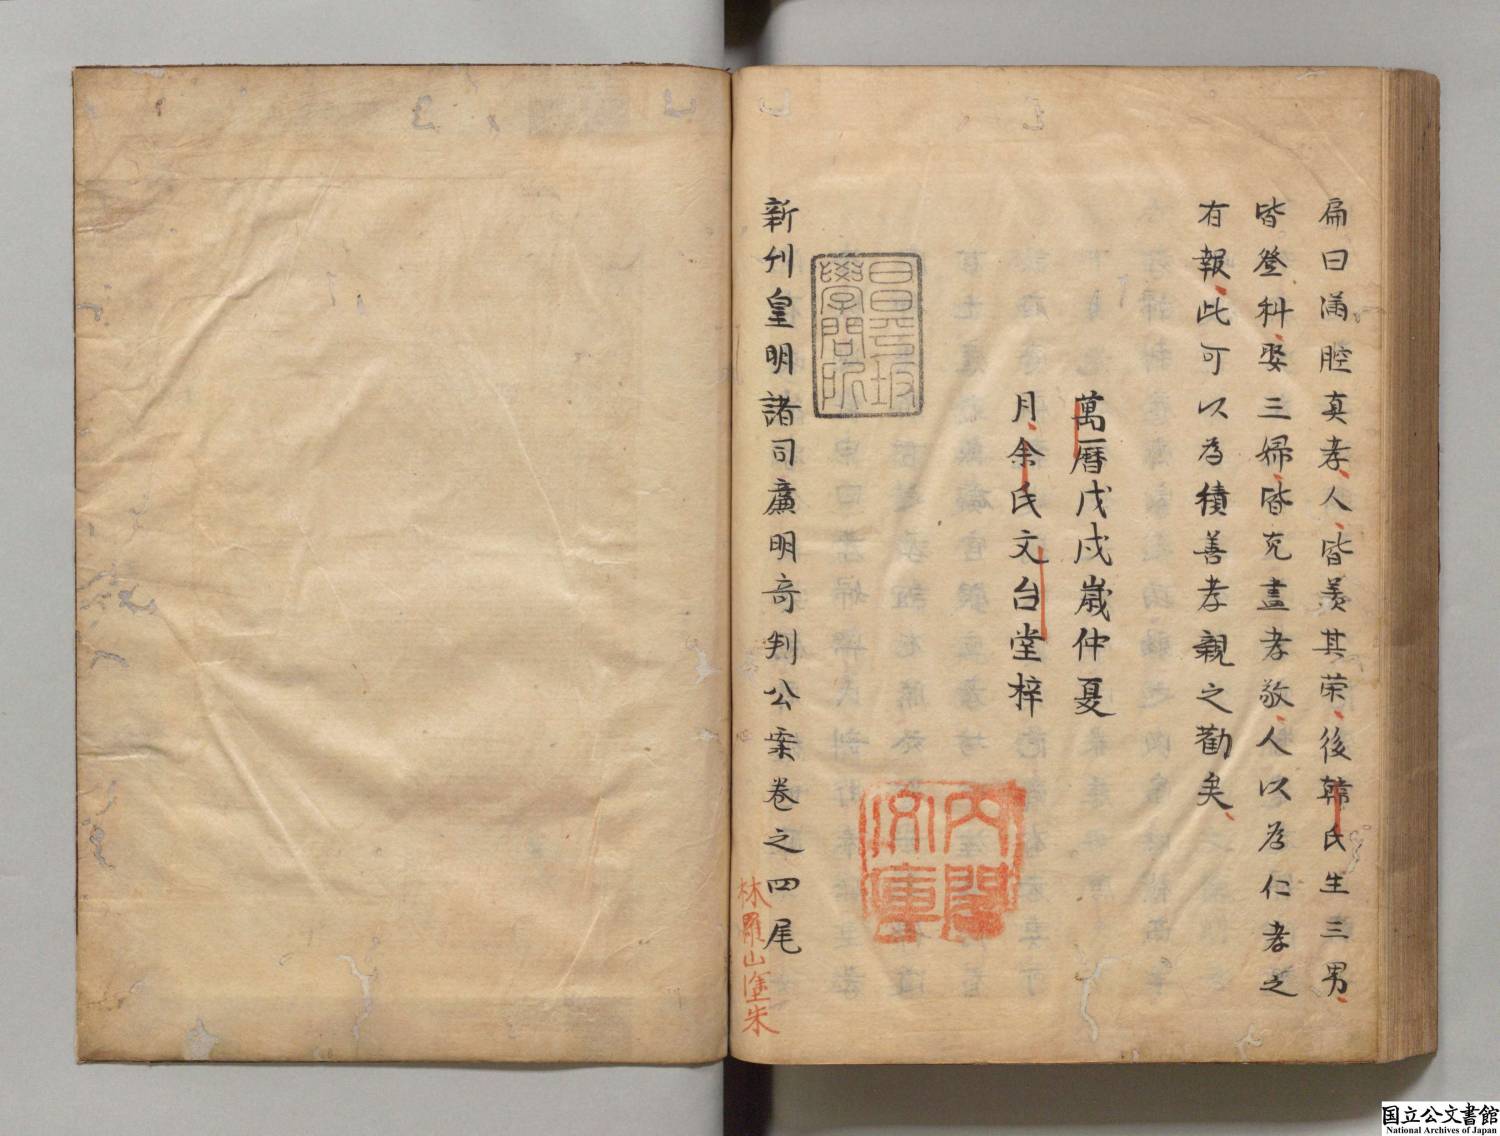 扁曰滿腔真孝人皆羨其荣後韓氏生三男
皆登科娶三婦皆克盡孝敬人以為仁孝之
有報此可以為積善孝親之勸矣
萬曆戊戌歲仲夏
月余氏文台堂梓
昌平坂
學問所
內閣
文庫
新刋皇明諸司廉明奇判公案卷之四尾
林羅山塗朱
国立公文書館
National Archives of Japan